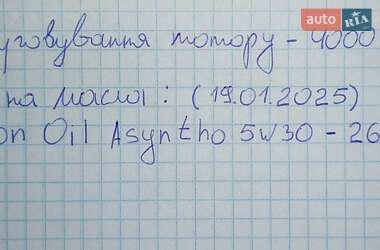 auto RIA
уговування мотору - 4000
на масла : (19.01.2025)
on Oil Asyntho 5W30 - 26